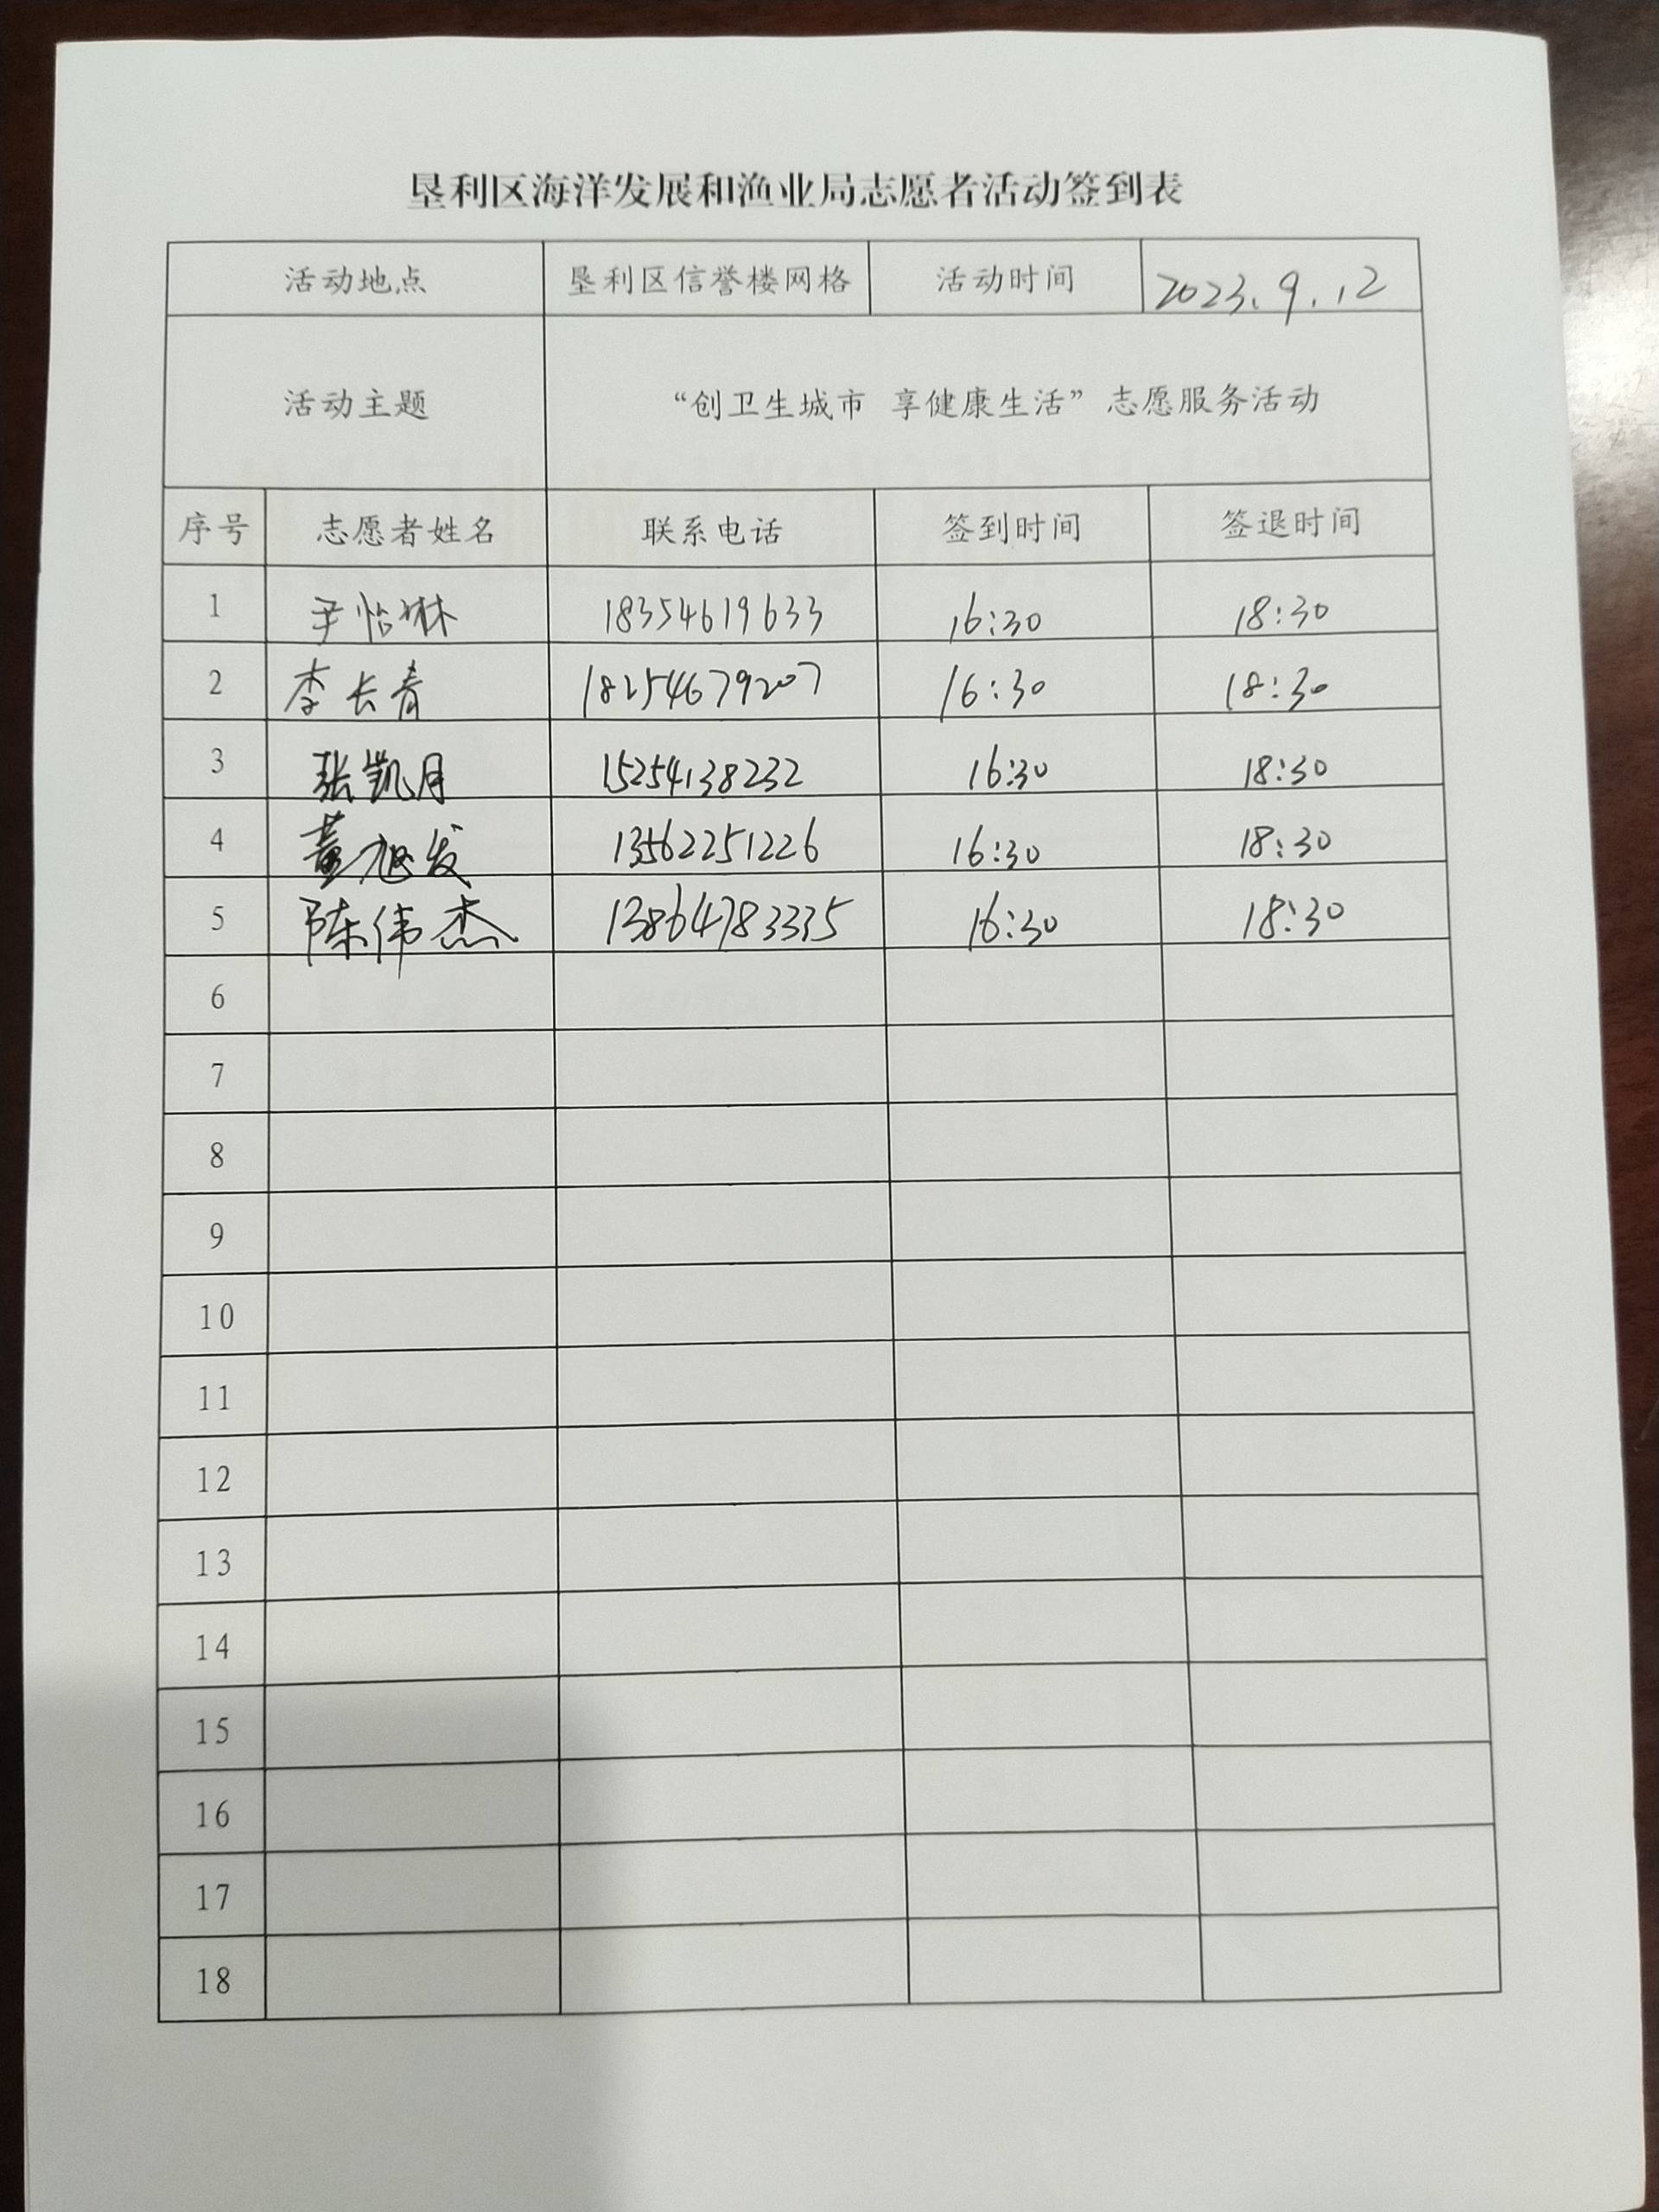 垦利区海洋发展和渔业局志愿者活动签到表
活动地点 垦利区信誉楼网格 活动时间 2023.9.12
活动主题 “创卫生城市 享健康生活”志愿服务活动
序号 志愿者姓名 联系电话 签到时间 签退时间
1 尹怡琳 18354619633 16:30 18:30
2 李长青 18254679207 16:30 18:30
3 张凯月 15254138232 16:30 18:30
4 董旭发 13562251226 16:30 18:30
5 陈伟杰 13864783335 16:30 18:30
6
7
8
9
10
11
12
13
14
15
16
17
18